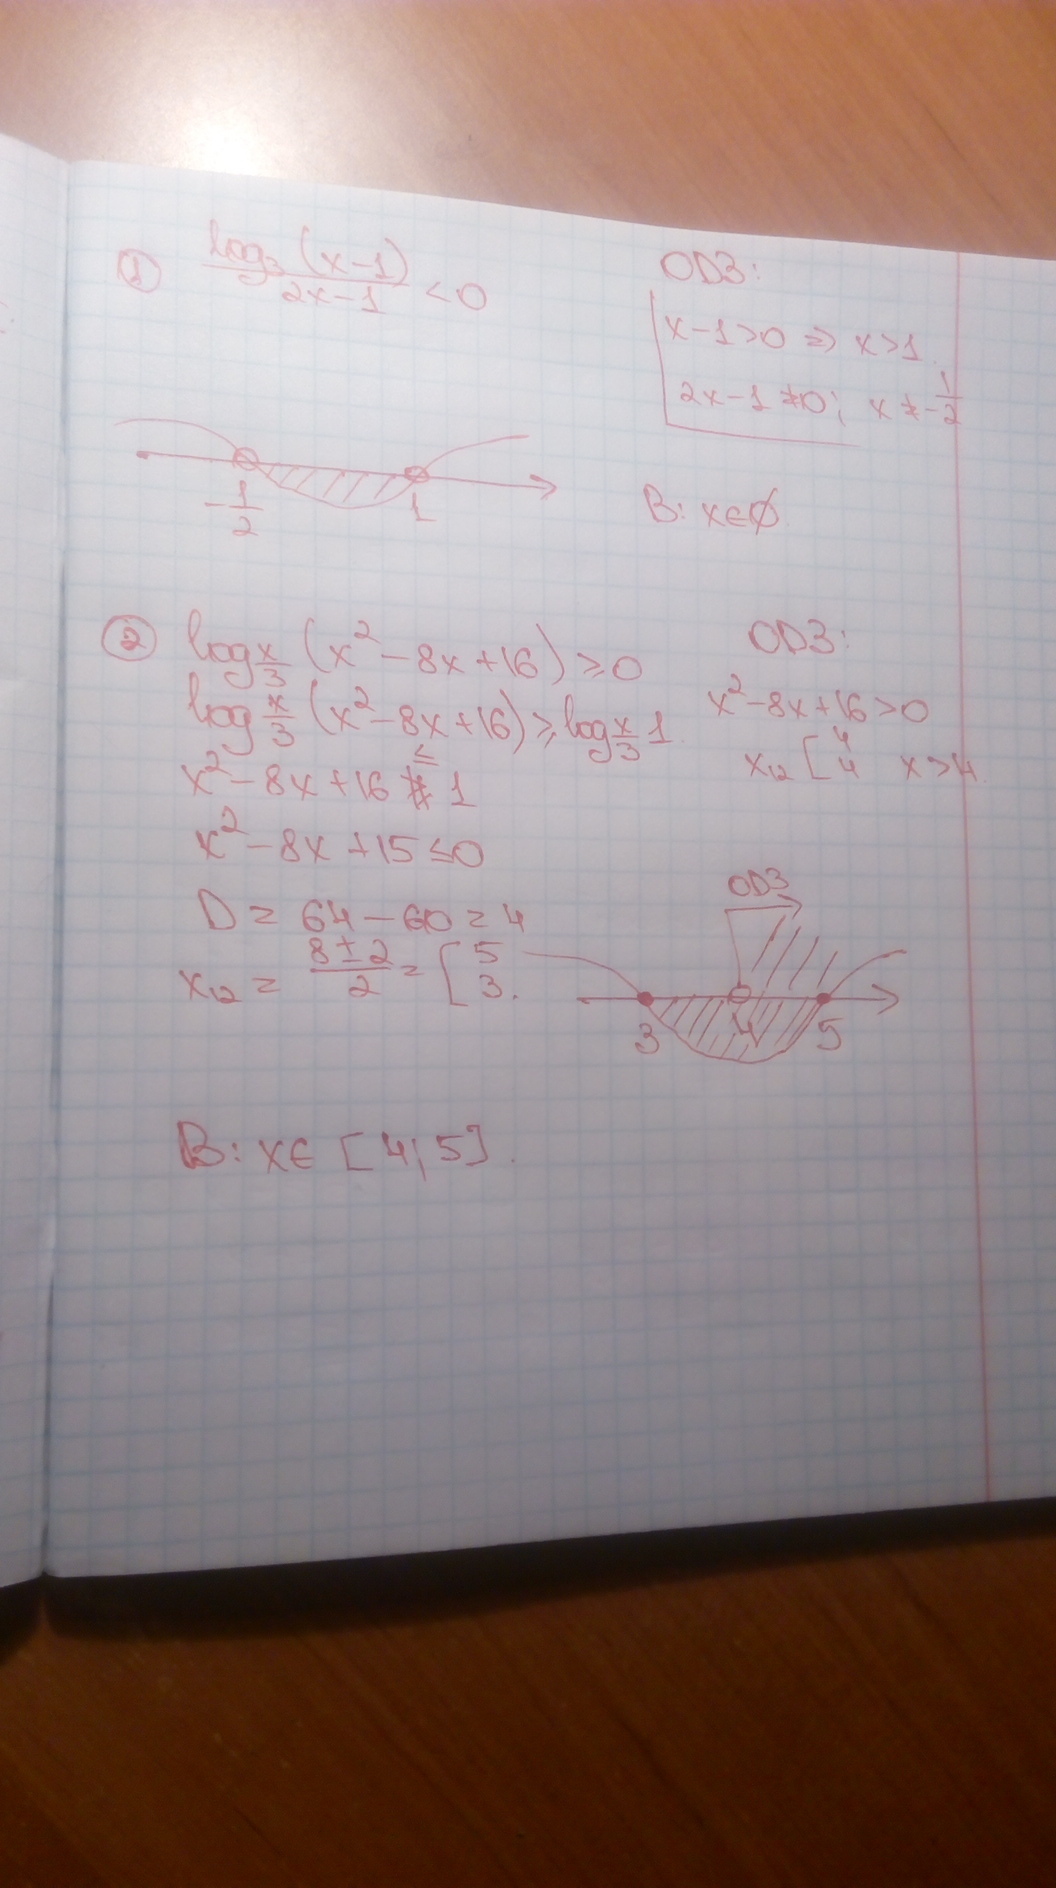 ① log₃(x-1)/(2x-1) < 0
ОДЗ:
x-1>0 => x>1
2x-1≠0; x≠-1/2
-1/2 1
В: x∈∅
② log x/3 (x²-8x+16) ≥ 0
log x/3 (x²-8x+16) ≥ log x/3 1.
x²-8x+16 ≤ 1
x²-8x+15≤0
D = 64-60=4
x₁₂ = (8±2)/2 = [5 3.
ОДЗ:
x²-8x+16>0
x₁₂ [4 4 x>4.
ОДЗ
3 4 5
В: x∈ [4;5].